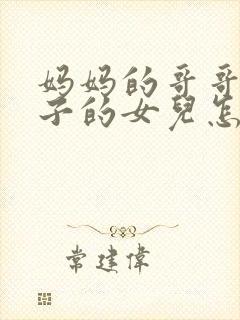 妈妈的哥哥
子的女兒怎
常建偉